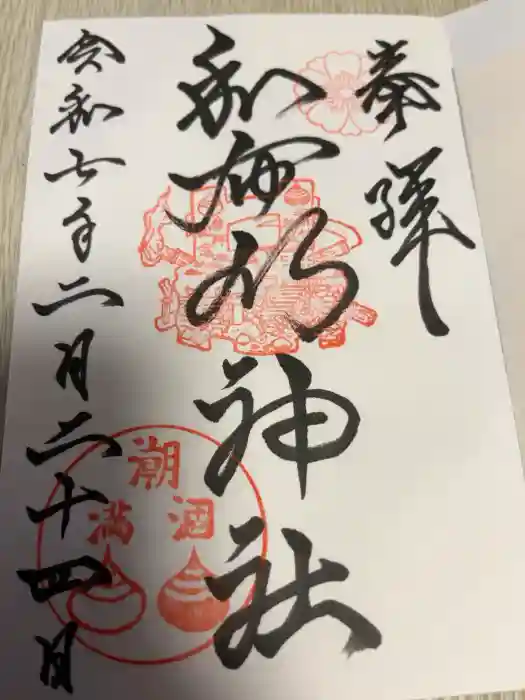 奉拝
和布刈神社
令和七年二月二十四日
潮
満 涸